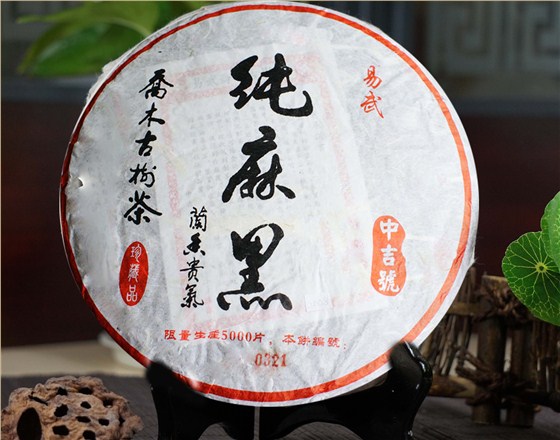 易武
中吉號
纯麻黑
蘭香贵氣
喬木古樹茶
珍藏品
限量生産5000片，本饼編號：
0321